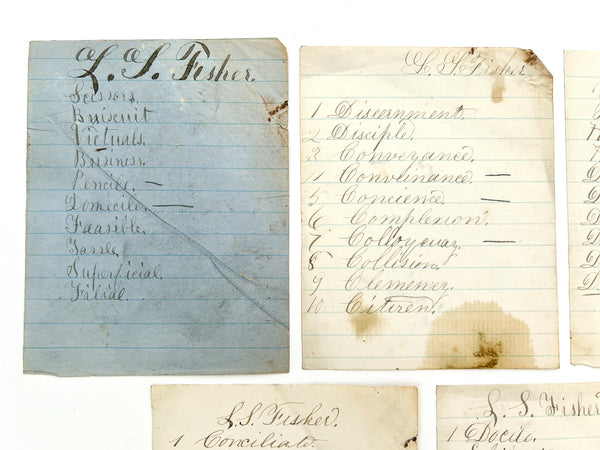 L. S. Fisher.
Scissors.
Buiscuit
Victuals.
Business.
Pencile. —
Domecile. —
Feasible.
Tassle.
Superficial.
Filial.
L. S. Fisher.
1 Discernment.
2 Disciple.
3 Conveyance.
4 Conveinance. —
5 Concience. —
6 Complexion.
7 —
8 Collision.
9 Clemency.
10 Citizen.
L. S. Fisher.
1 Conciliate.
L. S. Fisher
1 Docile.